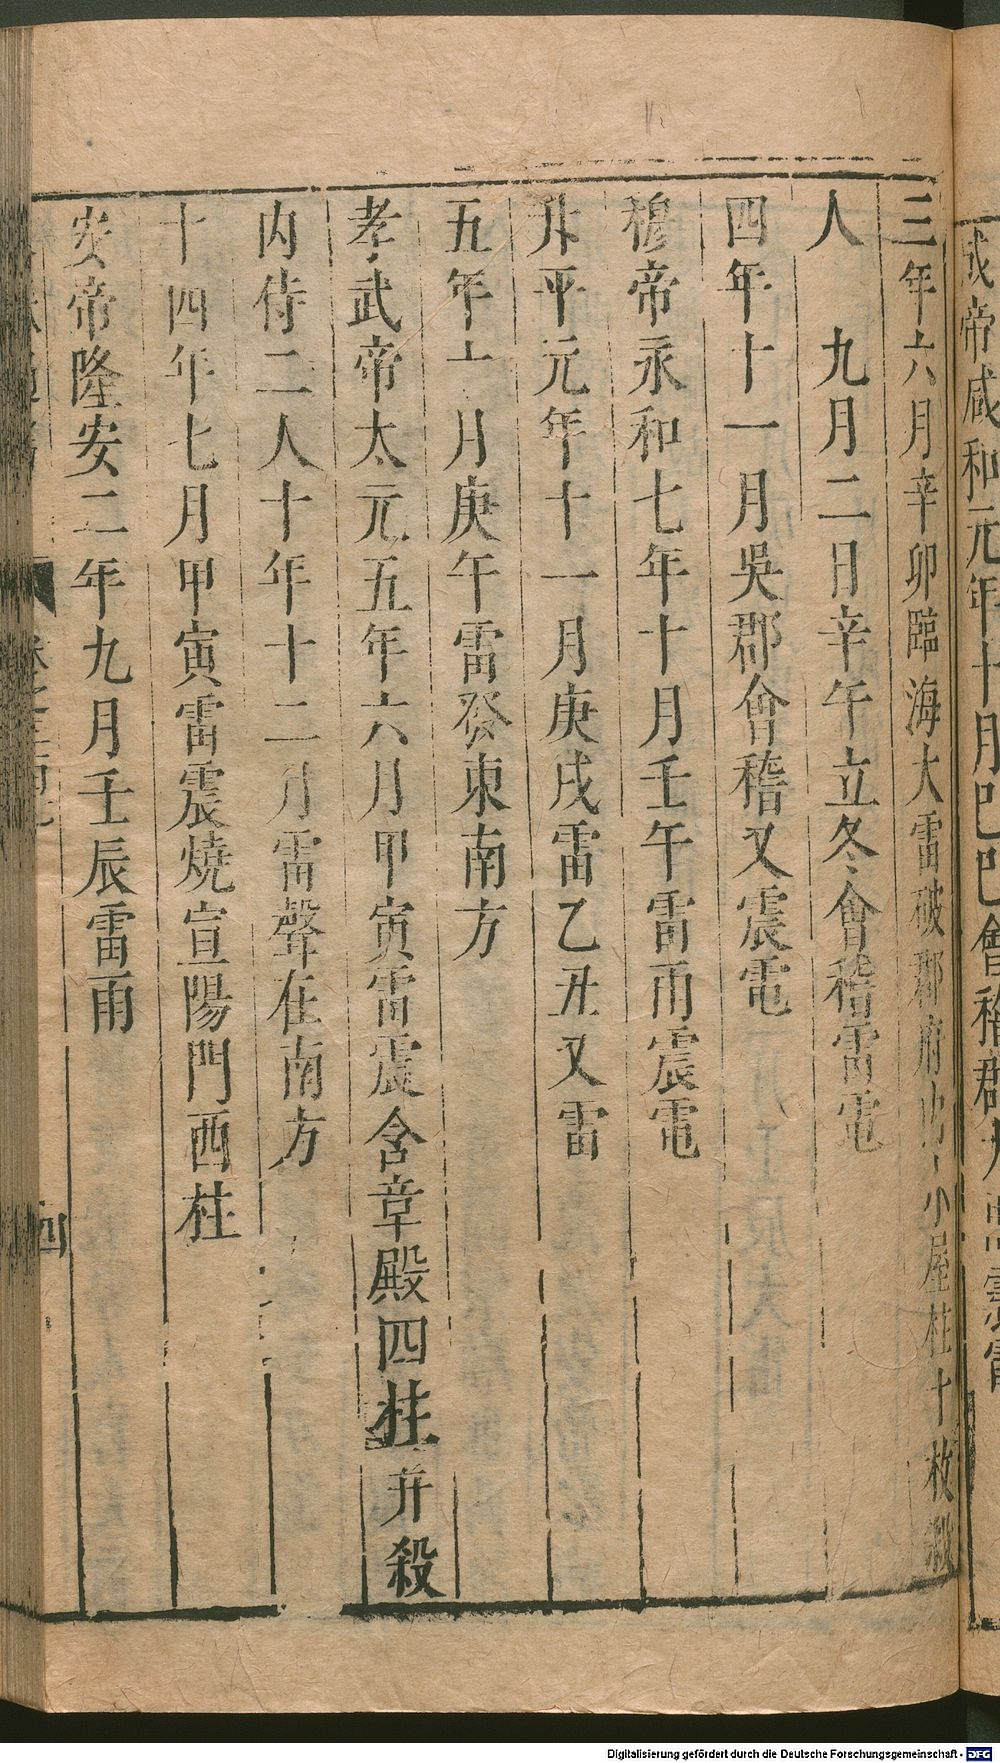 成帝咸和元年十月己巳會稽郡大雷
三年六月辛卯臨海大雷破郡府內小屋柱十枚殺
人　九月二日辛午立冬會稽雷電
四年十一月吳郡會稽又震電
穆帝永和七年十月壬午雷雨震電
升平元年十一月庚戌雷乙丑又雷
五年十月庚午雷發東南方
孝武帝太元五年六月甲寅雷震含章殿四柱并殺
內侍二人十年十二月雷聲在南方
十四年七月甲寅雷震燒宣陽門西柱
安帝隆安二年九月壬辰雷雨
四
Digitalisierung gefördert durch die Deutsche Forschungsgemeinschaft - DFG